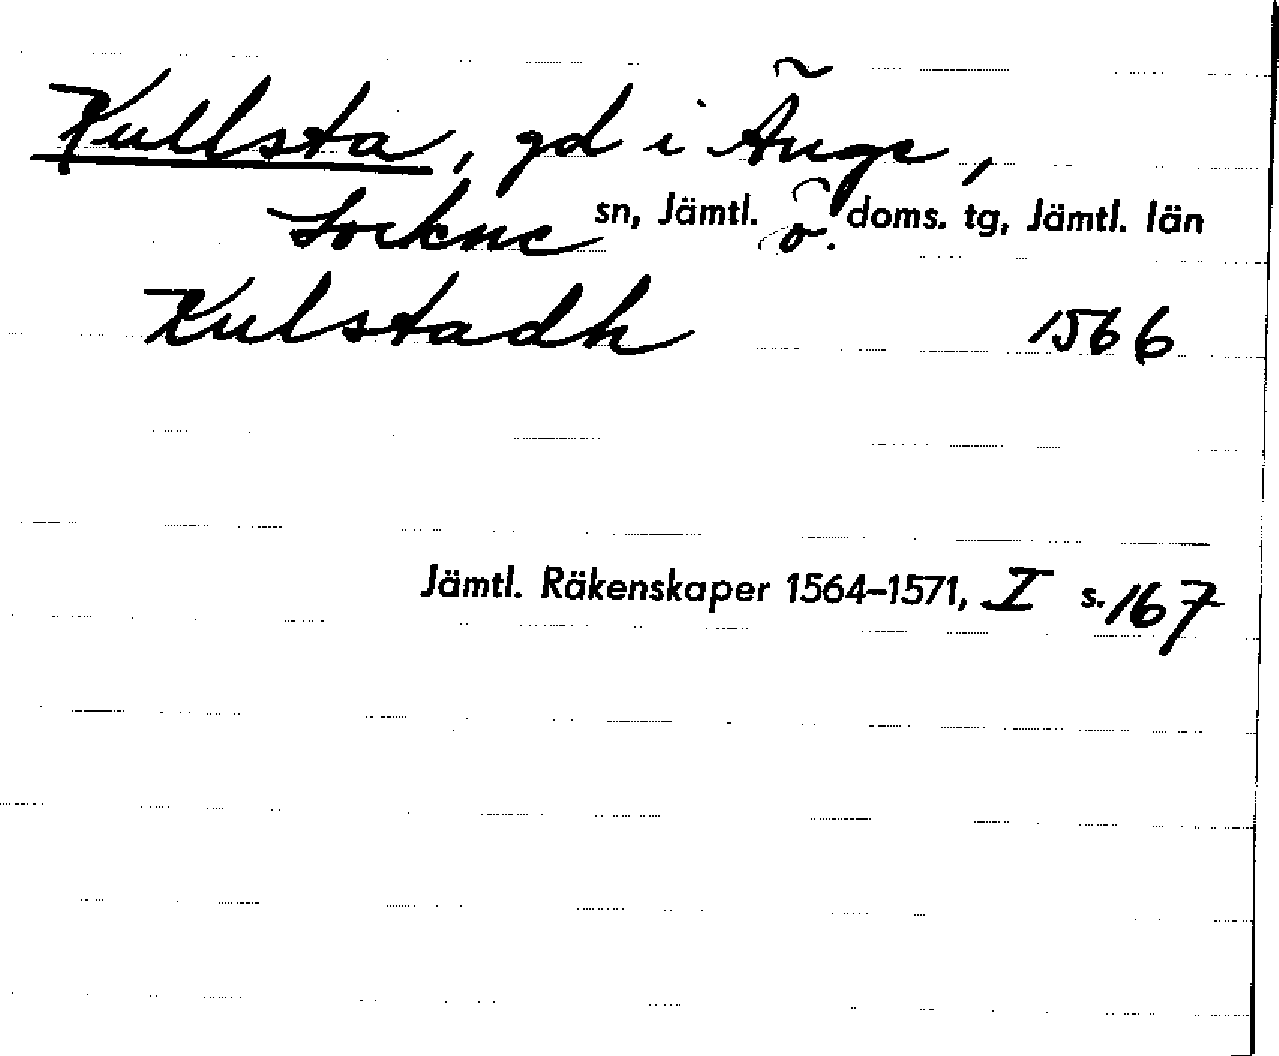 Kullsta, gd i Änge,
Lockne sn, Jämtl. ö. doms. tg, Jämtl. län
Kulstadh 1566
Jämtl. Räkenskaper 1564–1571, I s. 167